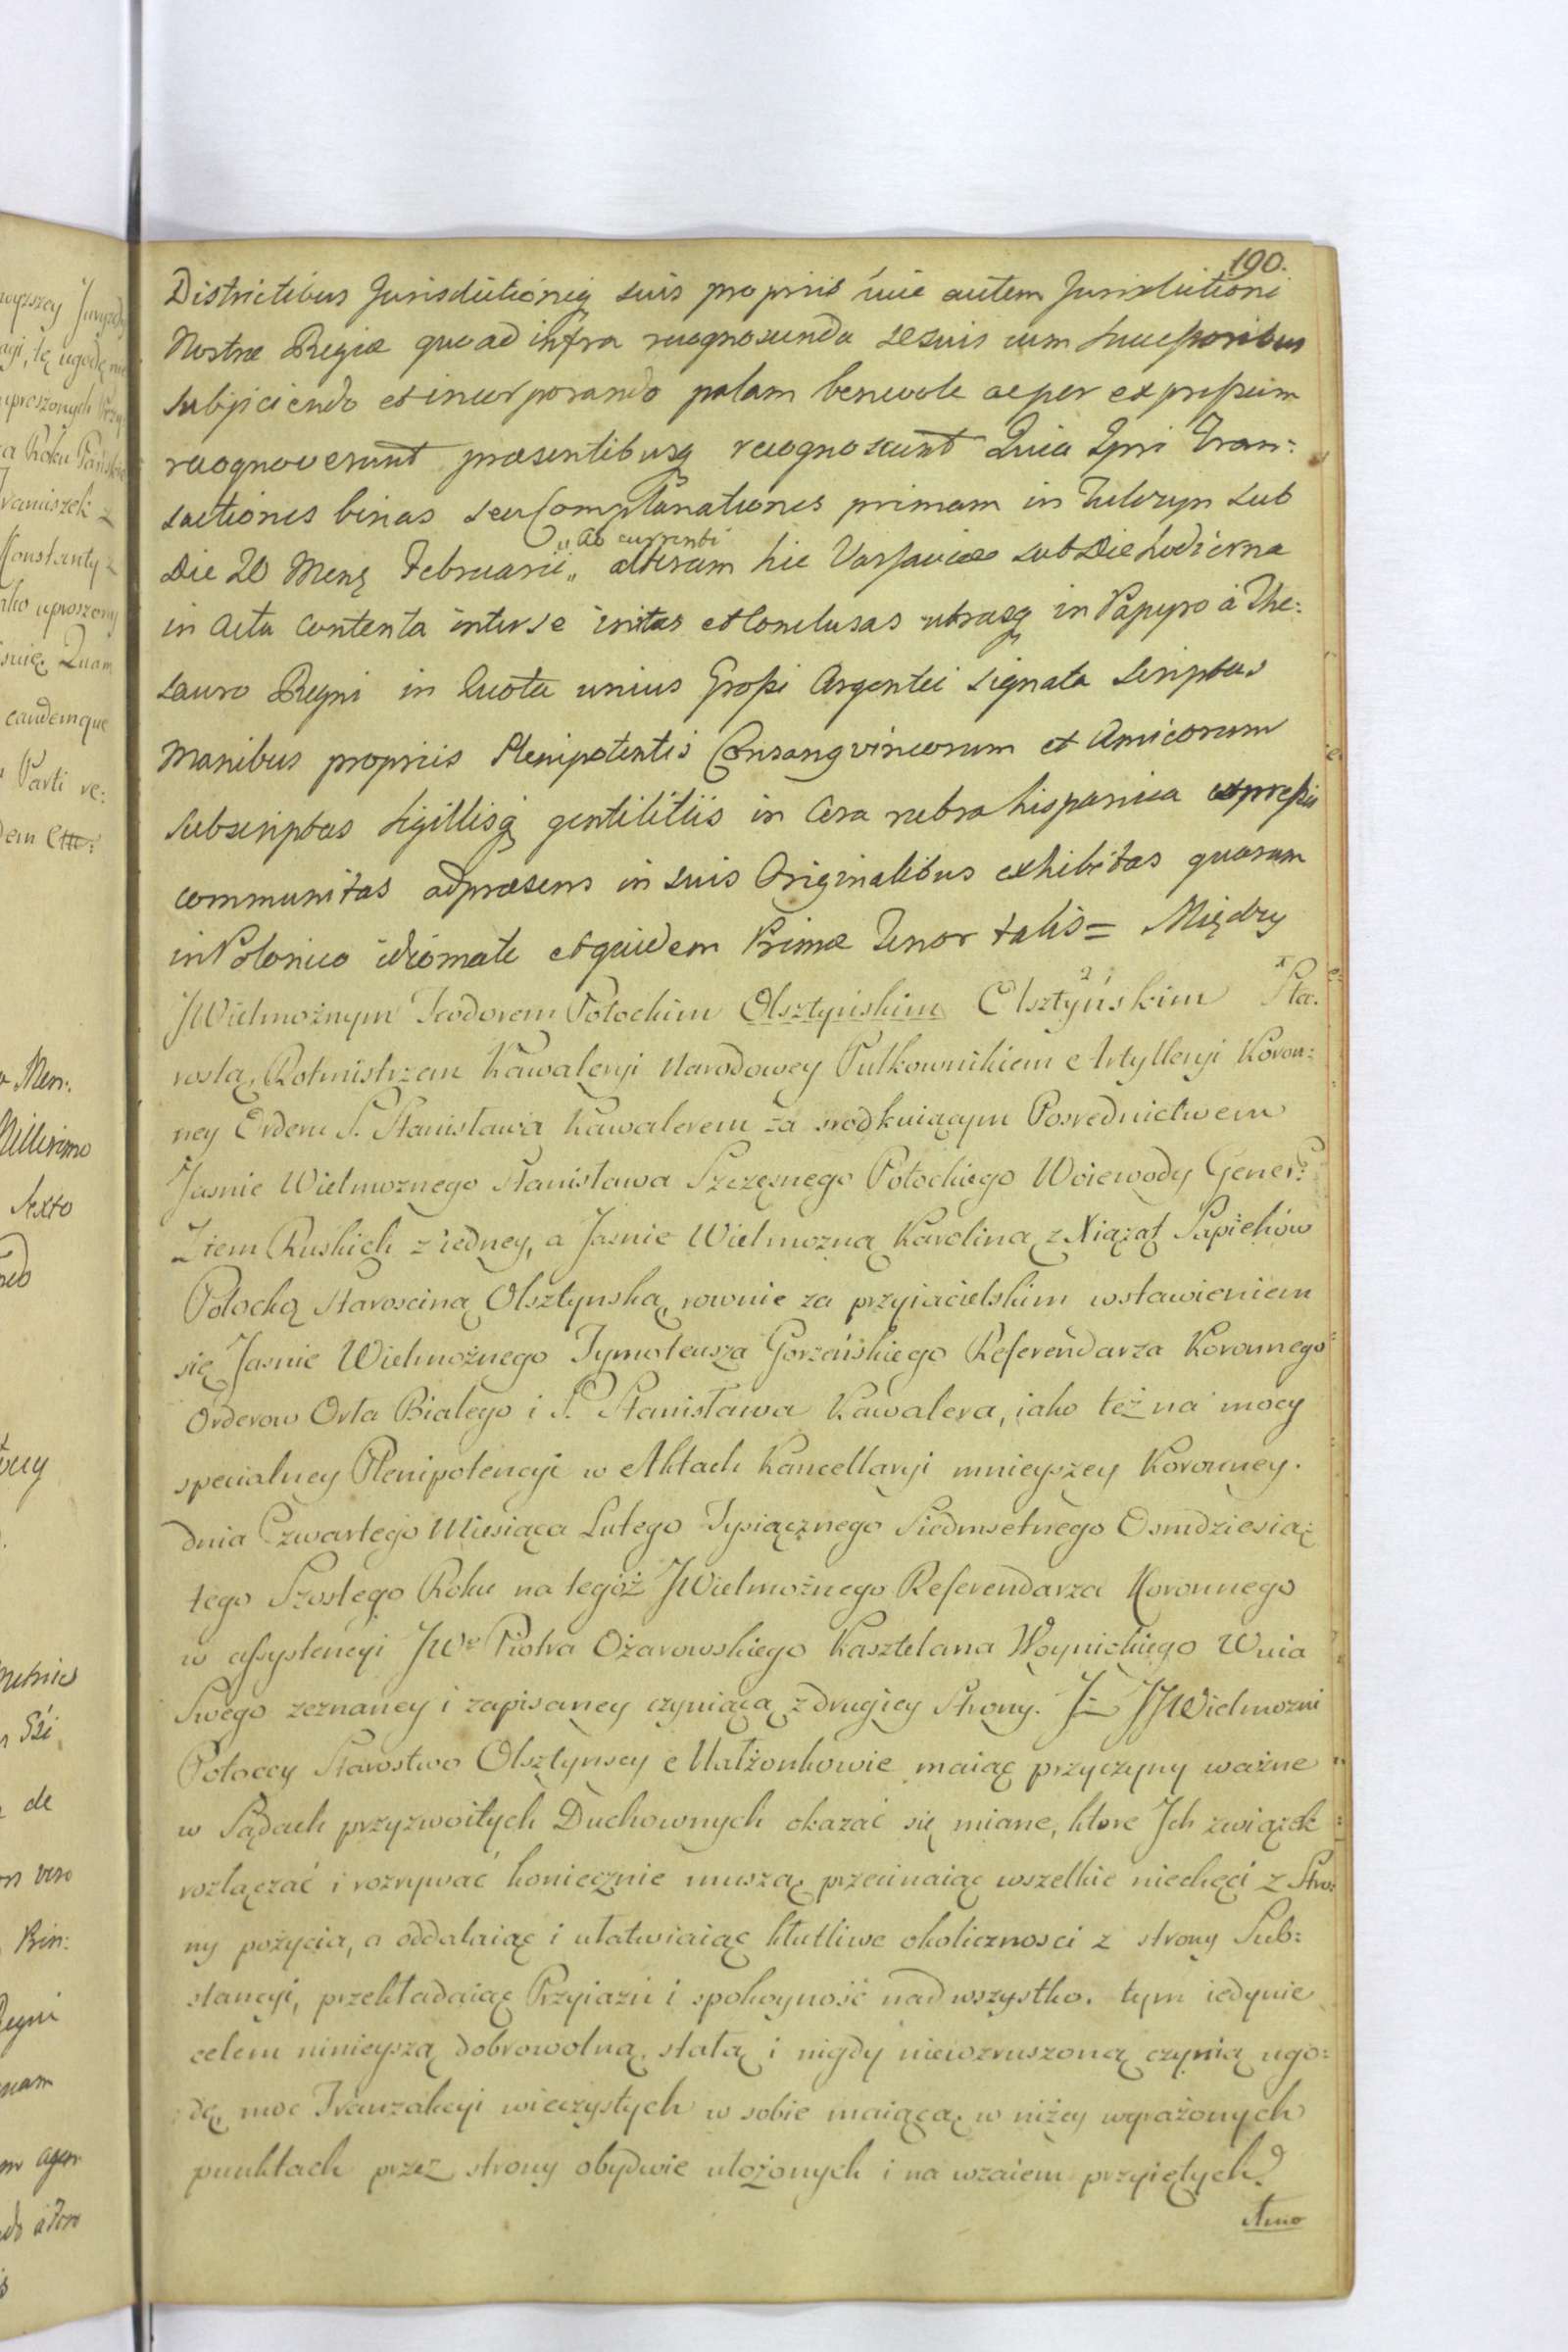 190.
Districtibus Jurisdictioniq suis propriis huic autem Jurisdictioni
Nostræ Regiæ quoad infra recognoscenda se suis cum Successoribus
subjiciendo et incorporando palam benevole ac per expressum
recognoverunt præsentibusq recognoscunt Quia Ipsi Tran:
sactiones binas seu Complanationes primam in Tulczyn sub
Die 20 Mens Februarii „ alteram hic Varsaviæ sub Die hodierna
„ aō currenti
in Actu contenta inter se initas et Conclusas utrasq in Papyro à The:
sauro Regni in Quota unius Grossi Argentei signata scriptas
Manibus propriis Plenipotentis Consangvineorum et Amicorum
subscriptas sigillisq gentilitiis in Cera rubra hispanica expressis
communitas adpræsens in suis Originalibus exhibitas quarum
in Polonico idiomate et quidem Primæ Tenor talis = Między
JWielmożnym Teodorem Potockim Olsztyńskim Olsztyńskim Sta.
2 1
rostą, Rotmistrzem Kawaleryi Narodowey Pułkownikiem Artylleryi Koron:
ney Orderu S. Stanisława Kawalerem za srodkuiącym Posrednictwem
Jasnie Wielmoznego Stanisława Szczęsnego Potockiego Woiewody Gener:
Ziem Ruskich z iedney, a Jasnie Wielmozną Karoliną z Xiążąt Sapiehów
Potocką Staroscina Olsztynską, rownie za przyiacielskim wstawieniem
się Jasnie Wielmożnego Tymoteusza Gorzeńskiego Referendarza Koronnego
Orderow Orła Białego i S. Stanisława Kawalera, iako też na mocy
specialney Plenipotencyi w Aktach Kancellaryi mnieyszey Koronney.
dnia Czwartego Miesiąca Lutego Tysiącznego Siedmsetnego Osmdziesią:
tego Szostego Roku na tegóż JWielmożnego Referendarza Koronnego
w assystencyi JWo Piotra Ożarowskiego Kasztelana Woynickiego Wuia
Swego zeznaney i zapisaney czyniącą z drugiey Strony. Iż JJWielmozni
Potoccy Starostwo Olsztynscy Małżonkowie maiąc przyczyny ważne
w Sądach przyzwoitych Duchownych okazać się miane, ktore Ich związek
rozłączać i rozrywać koniecznie muszą, przecinaiąc wszelkie niechęci z Stro:
ny pożycia, a oddalaiąc i ułatwiaiąc kłutliwe okolicznosci z strony Sub:
stancyi, przekładaiąc Przyiaźń i spokoyność nad wszystko. tym iedynie
celem ninieyszą dobrowolną, stałą i nigdy niewzruszoną czynią ugo:
dę, moc Tranzakcyi wieczystych w sobie maiącą, w niżey wyrażonych
punktach przez strony obydwie ułożonych i na wzaiem przyiętych.
Amo